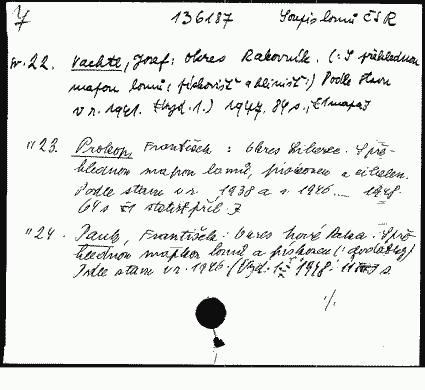 7 136187 Soupis lomů ČSR
čr. 22. Vachtl, Josef: Okres Rakovník. (: S přehlednou
mapou lomů, pískovišť a hlinišť:) Podle stavu
v r. 1941. 1.) 1947. 84 s., [1 mapa]
"23. Prokop, František: Okres Liberec. S pře-
hlednou mapou lomů, pískoven a cihelen.
Podle stavu v r. 1938 a r. 1946 1948.
64 s. příl. 7
"24. František: Okres Nová Paka. S pře-
hlednou mapkou lomů a pískoven (:
stavu v r. 1946. (Vyd. 1 1948. s
./.